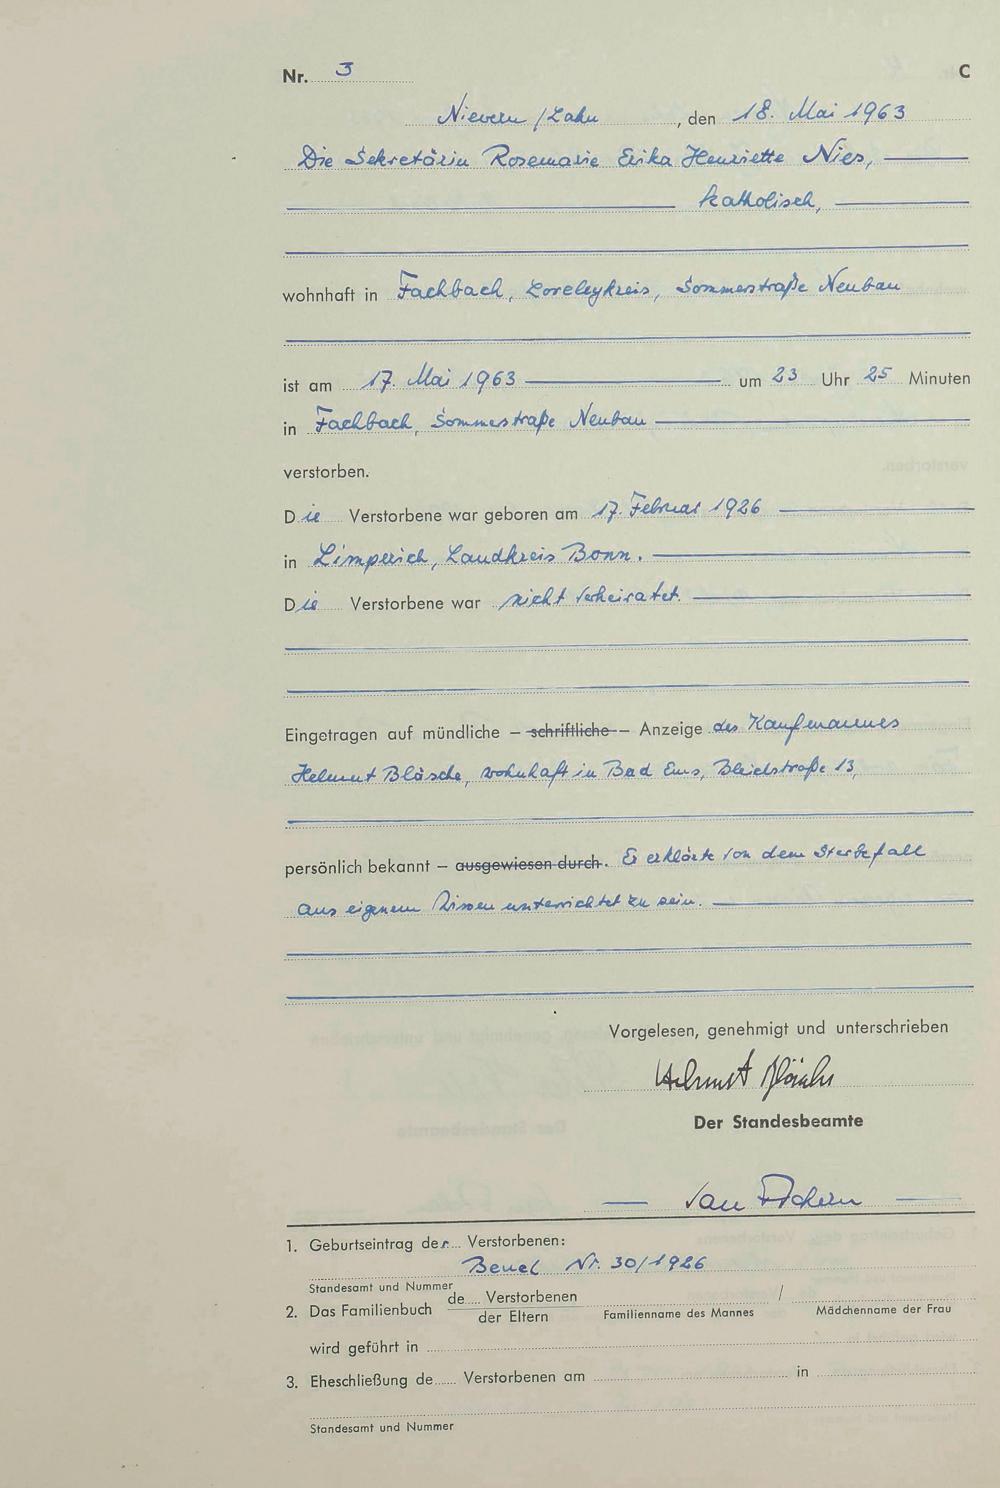 Nr. 3 C
Nievern/Lahn, den 18. Mai 1963
Die Sekretärin Rosemarie Erika Henriette Nies,
katholisch,
wohnhaft in Fachbach, Loreleykreis, Sommerstraße Neubau
ist am 17. Mai 1963 um 23 Uhr 25 Minuten
in Fachbach, Sommerstraße Neubau
verstorben.
Die Verstorbene war geboren am 17. Februar 1926
in Limperich, Landkreis Bonn.
Die Verstorbene war nicht verheiratet.
Eingetragen auf mündliche – schriftliche – Anzeige des Kaufmannes
Helmut Bläsche, wohnhaft in Bad Ems, Bleichstraße 13,
persönlich bekannt – ausgewiesen durch. Er erklärte von dem Sterbefall
aus eigenem Wissen unterrichtet zu sein.
Vorgelesen, genehmigt und unterschrieben
Helmut Bläsche
Der Standesbeamte
van
1. Geburtseintrag der Verstorbenen:
Beuel Nr. 30/1926
Standesamt und Nummer
2. Das Familienbuch de Verstorbenen /
der Eltern Familienname des Mannes Mädchenname der Frau
wird geführt in
3. Eheschließung de Verstorbenen am in
Standesamt und Nummer